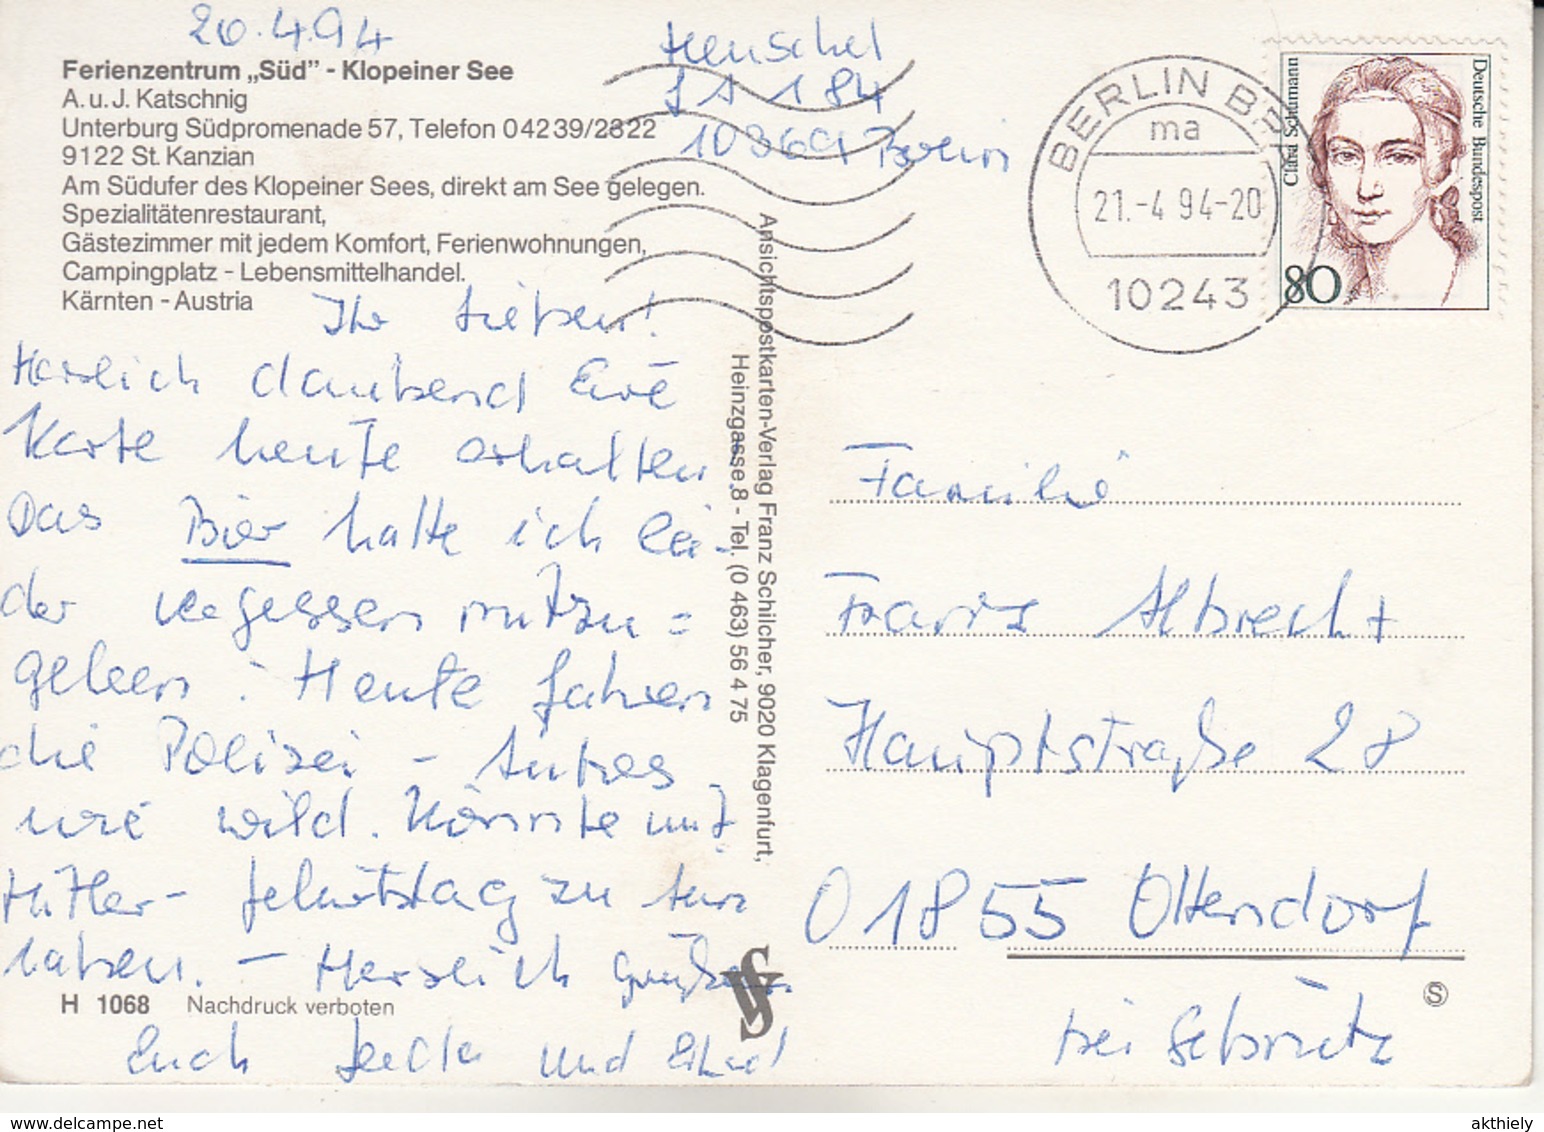 20.4.94
Ferienzentrum „Süd” - Klopeiner See
A. u. J. Katschnig
Unterburg Südpromenade 57, Telefon 0 42 39/2322
9122 St. Kanzian
Am Südufer des Klopeiner Sees, direkt am See gelegen.
Spezialitätenrestaurant,
Gästezimmer mit jedem Komfort, Ferienwohnungen,
Campingplatz - Lebensmittelhandel.
Kärnten - Austria
Henschel
184
10369 Berlin
BERLIN
ma
21.-4 94-20
10243
Clara Schumann
Deutsche Bundespost
80
Ihr Lieben!
Herzlich dankend Eure
Karte heute erhalten.
Das Bier hatte ich lei-
der vergessen mitzu=
geben. Heute fahren
die Polizei - Autos
wie wild. Könnte mit
Hitler - geburtstag zu tun
haben. - Herzlich grüßen
Euch und
Ansichtspostkarten-Verlag Franz Schilcher, 9020 Klagenfurt,
Heinzgasse 8 - Tel. (0 463) 56 4 75
Familie
Franz Albrecht
Hauptstraße 28
01855 Ottendorf
bei Sebnitz
H 1068 Nachdruck verboten
S
akthiely